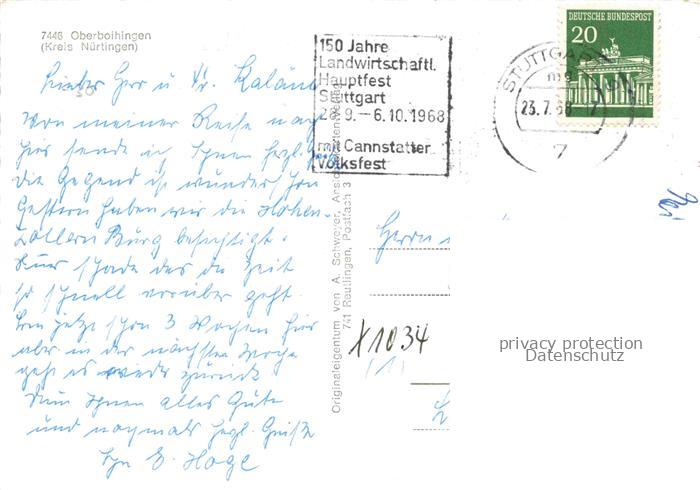 7446 Oberboihingen
(Kreis Nürtingen)
Lieber Herr u Fr.
Von meiner Reise nach
hier sende ich Ihnen herzl.
Die Gegend ist wunderschön
Gestern haben wir die Hohen-
zollern Burg besichtigt.
Nur schade das die Zeit
so schnell vorüber geht.
Bin jetzt schon 3 Wochen hier
aber in der nächsten Woche
geht es wieder zurück
Nun Ihnen alles Gute
und nochmals herzl. Grüße
Ihr E. Hoge
150 Jahre
Landwirtschaftl.
Hauptfest
Stuttgart
28.9.–6.10.1968
mit Cannstatter
Volksfest
STUTTGART
mg
23.7.68
7
DEUTSCHE BUNDESPOST
20
Originaleigentum von A. Schwerer,
741 Reutlingen, Postfach 3
Herrn
X1034
(1)
privacy protection
Datenschutz